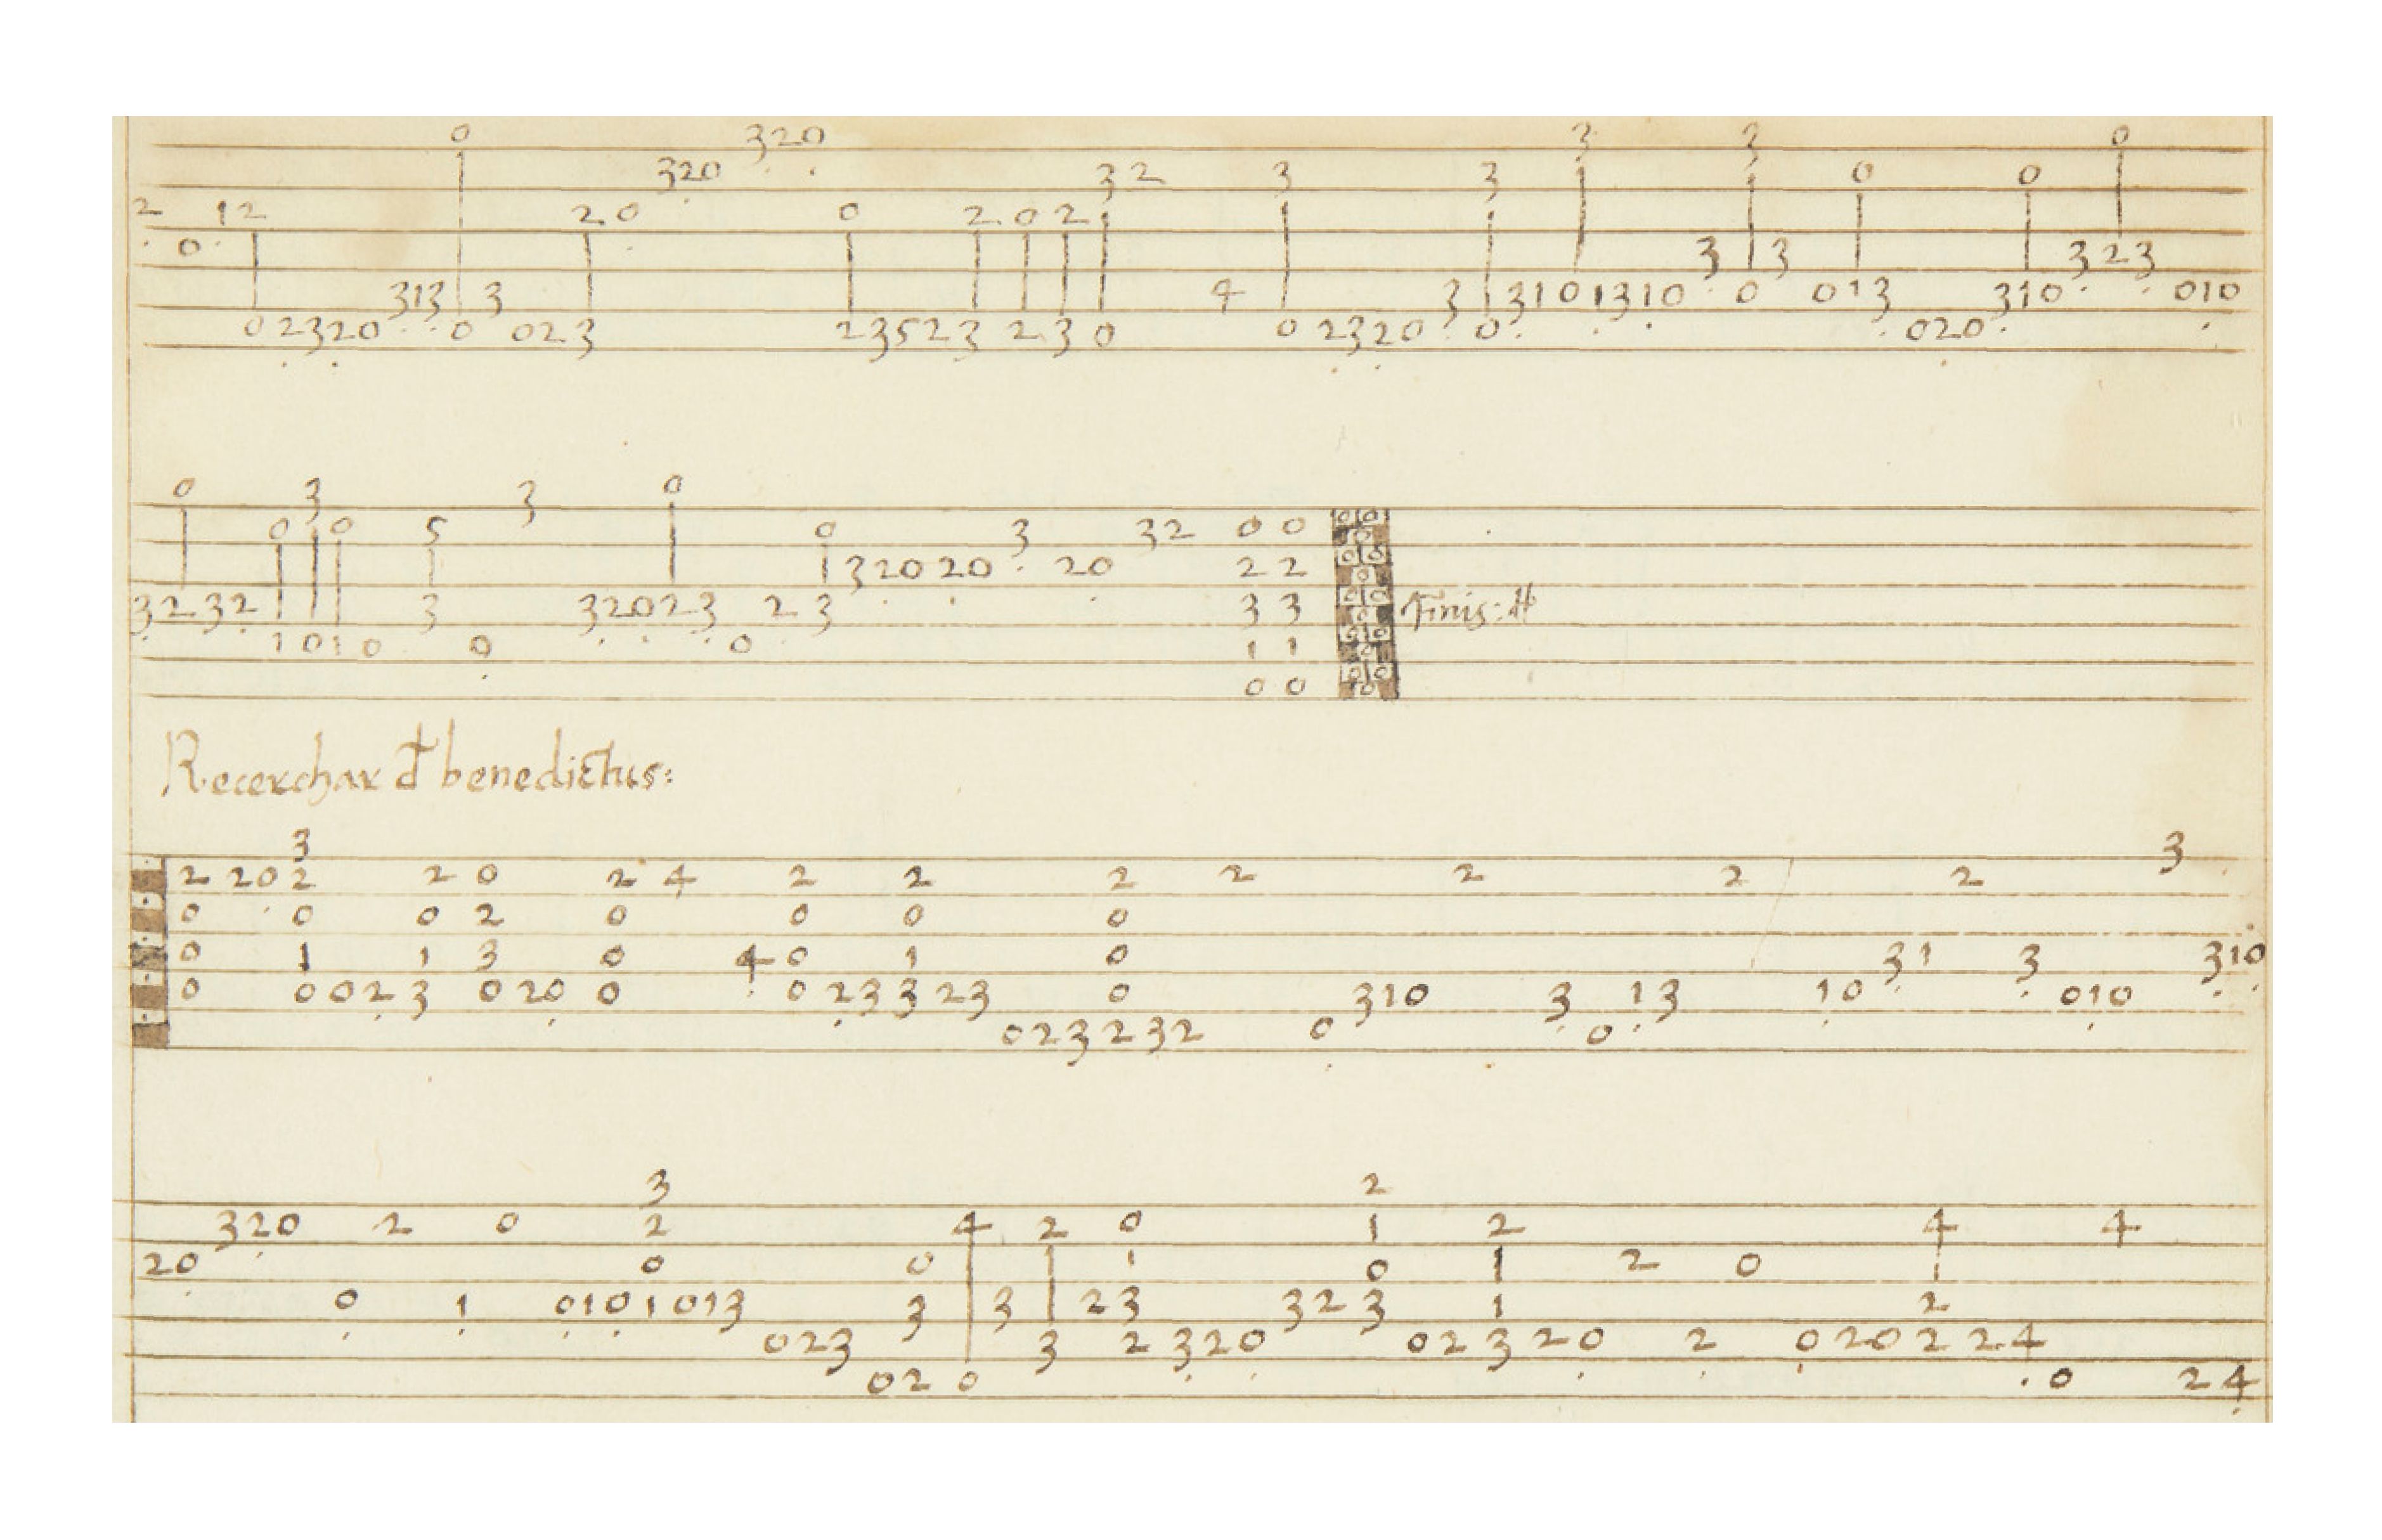 Finis:
Recerchar đ benedictus: